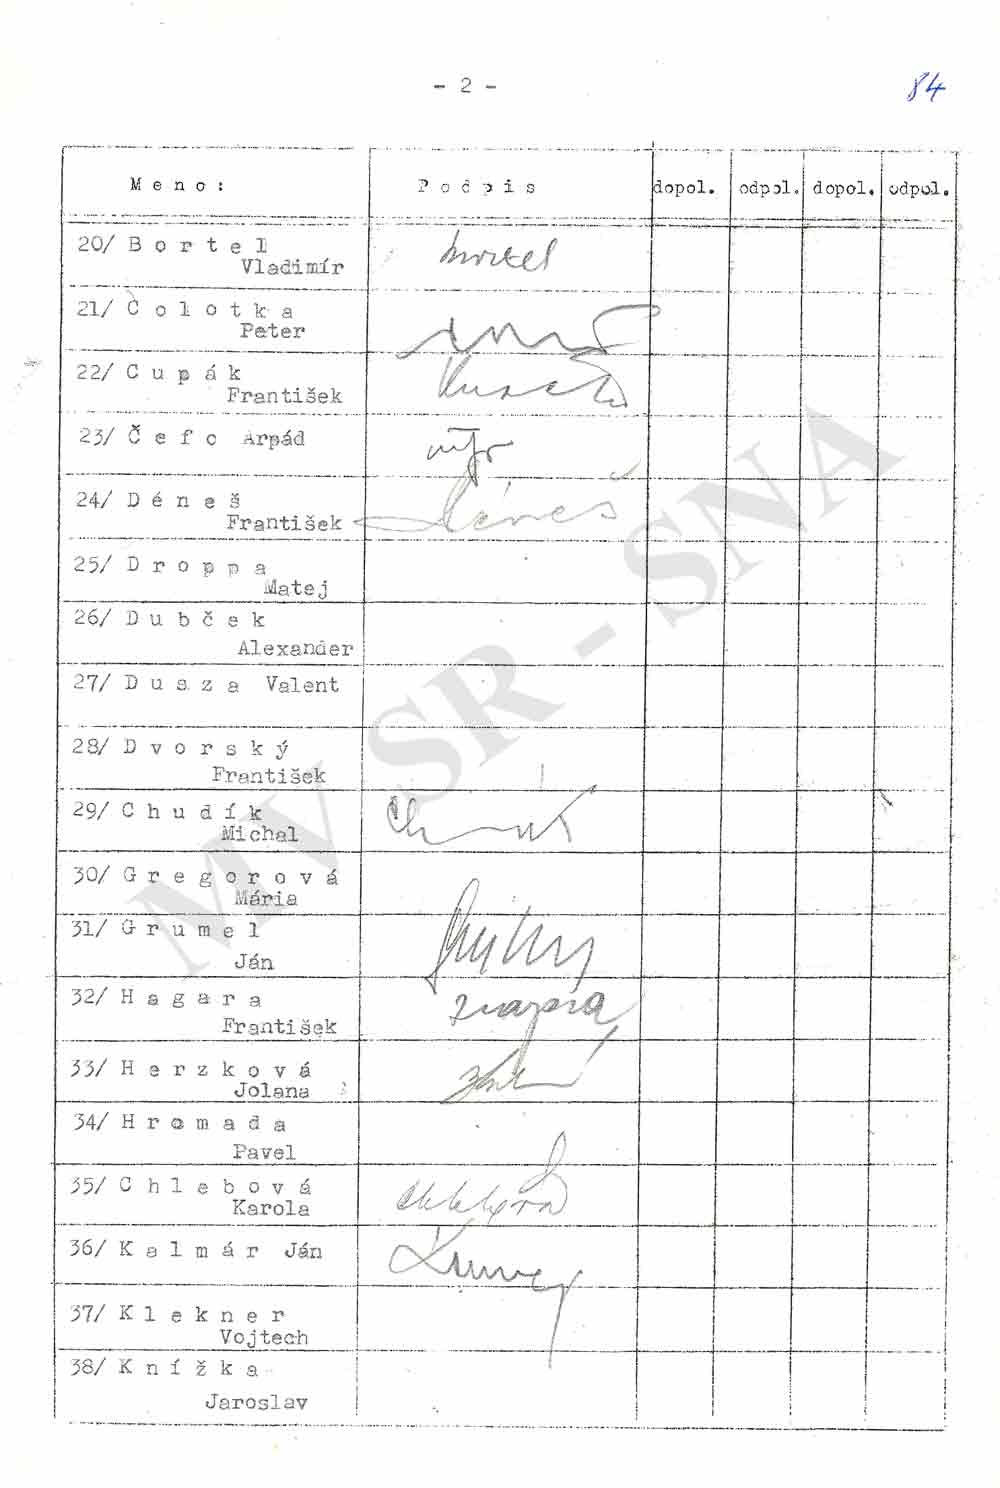 - 2 -
84
Meno: Podpis dopol. odpol. dopol. odpol.
20/ Bortel
Vladimír
21/ Čolotka
Peter
22/ Cupák
František
23/ Čefo Arpád
24/ Déneš
František
Déneš
25/ Droppa
Matej
26/ Dubček
Alexander
27/ Dusza Valent
28/ Dvorský
František
29/ Chudík
Michal
30/ Gregorová
Mária
31/ Grumel
Ján
32/ Hagara
František
33/ Herzková
Jolana
34/ Hromada
Pavel
35/ Chlebová
Karola
36/ Kalmár Ján
37/ Klekner
Vojtech
38/ Knížka
Jaroslav
MV SR - SNA